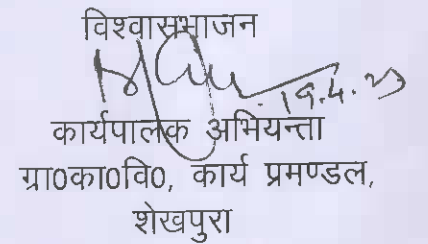 विश्वासभाजन
19.4.23
कार्यपालक अभियन्ता
ग्रा0का0वि0, कार्य प्रमण्डल,
शेखपुरा